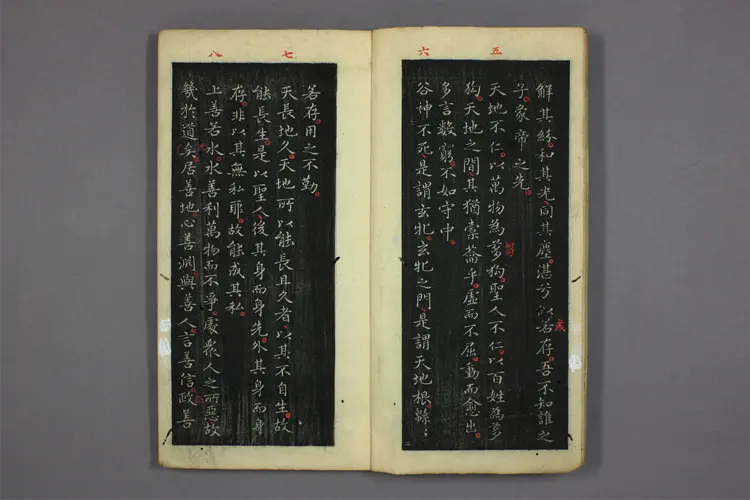 五
解其紛和其光同其塵湛兮以若存吾不知誰之
或
子象帝之先
天地不仁以萬物為芻狗聖人不仁以百姓為芻
狗天地之間其猶橐籥乎虛而不屈動而愈出
六
多言數窮不如守中
谷神不死是謂玄牝玄牝之門是謂天地根緜〻
七
若存用之不勤
天長地久天地所以能長且久者以其不自生故
能長生是以聖人後其身而身先外其身而身
存非以其無私耶故能成其私
八
上善若水水善利萬物而不爭處衆人之所惡故
幾於道矣居善地心善淵與善人言善信政善